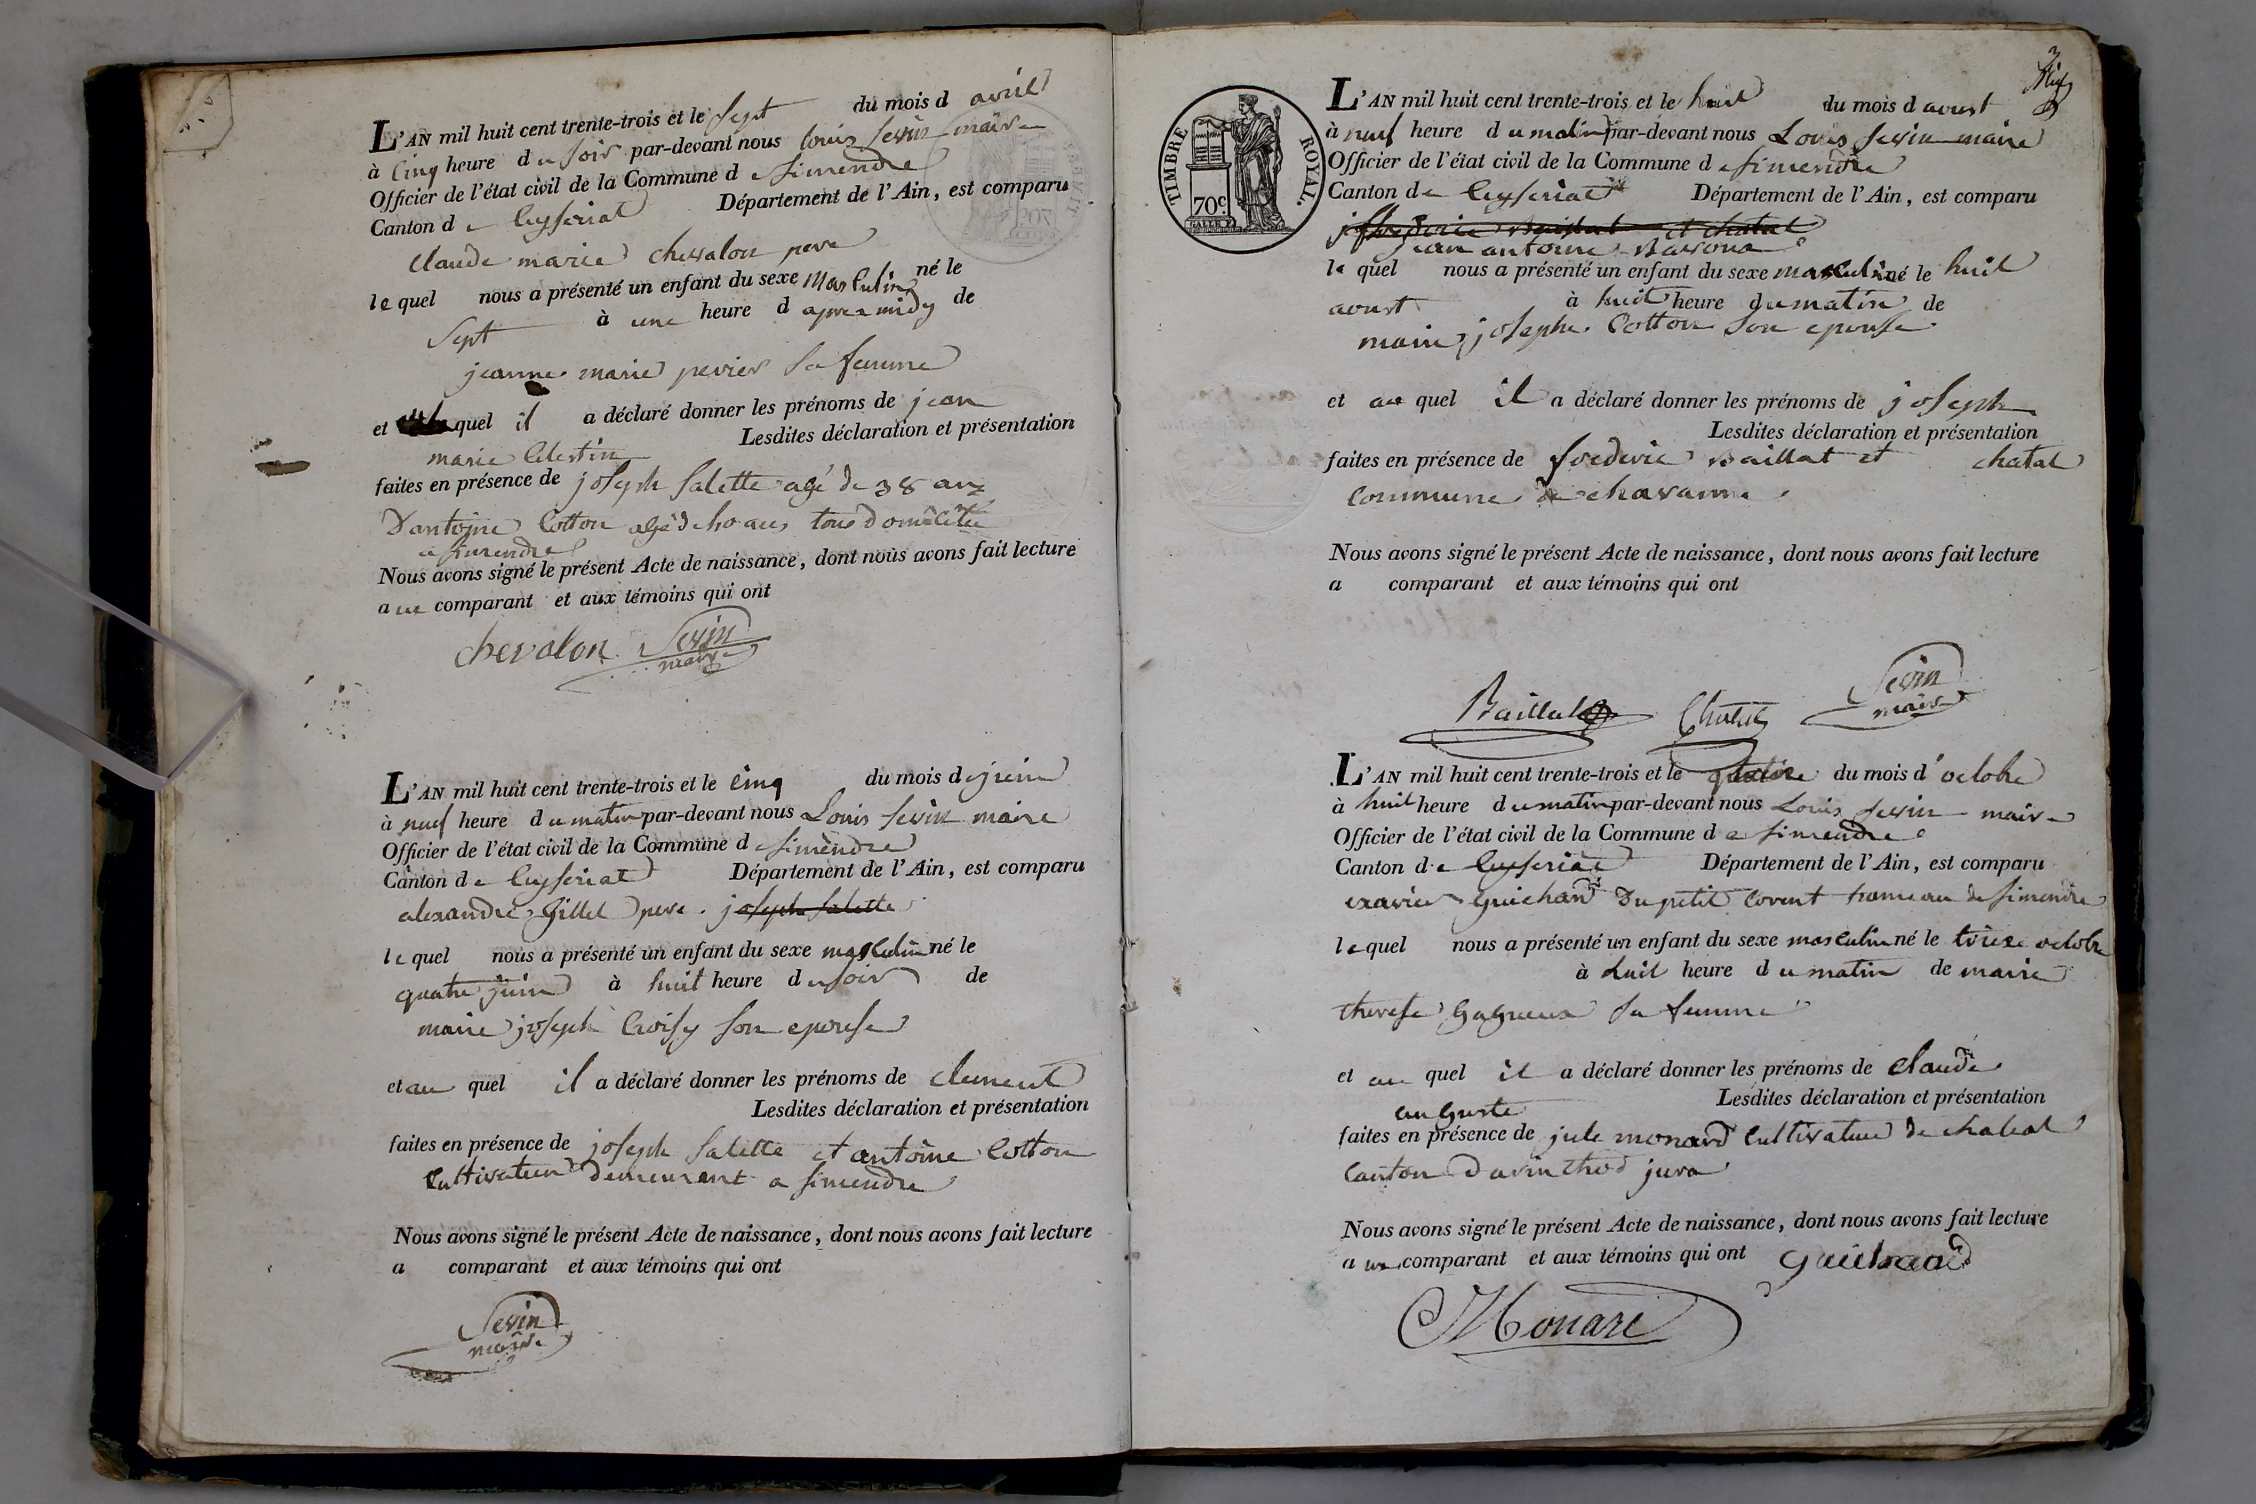 L'AN mil huit cent trente-trois et le sept du mois d avril
à cinq heure du soir par-devant nous louis sevin maire
Officier de l'état civil de la Commune de simendre
Canton de Ceyseriat Département de l'Ain, est comparu
claude marie chevalon pere
lequel nous a présenté un enfant du sexe masculin né le
sept à une heure d apres midy de
jeanne marie perier sa femme
et quel il a déclaré donner les prénoms de jean
marie Celestin Lesdites déclaration et présentation
faites en présence de joseph salette agé de 38 ans
D'antoine Cotton agé de 40 ans tous domicilié
a simendre
Nous avons signé le présent Acte de naissance, dont nous avons fait lecture
au comparant et aux témoins qui ont
chevalon Sevin
maire
L'AN mil huit cent trente-trois et le cinq du mois de juin
à neuf heure du matin par-devant nous Louis sevin maire
Officier de l'état civil de la Commune de simendre
Canton de Ceyseriat Département de l'Ain, est comparu
alexandre Gillet pere joseph salette
lequel nous a présenté un enfant du sexe masculin né le
quatre juin à huit heure du soir de
marie joseph Croisy son epouse
et au quel il a déclaré donner les prénoms de clement
Lesdites déclaration et présentation
faites en présence de joseph salette et antoine Cotton
Cultivateur demeurent a simendre
Nous avons signé le présent Acte de naissance, dont nous avons fait lecture
a comparant et aux témoins qui ont
Sevin
maire
3
TIMBRE ROYAL.
70c
L'AN mil huit cent trente-trois et le huit du mois d aoust
à neuf heure du matin par-devant nous Louis sevin maire
Officier de l'état civil de la Commune de simendre
Canton de Ceyseriat Département de l'Ain, est comparu
frederic Baillat et chatal
jean antoine
lequel nous a présenté un enfant du sexe masculin né le huit
aoust à huit heure du matin de
marie josephe Cotton son epouse
et au quel il a déclaré donner les prénoms de joseph
Lesdites déclaration et présentation
faites en présence de frederic Baillat et chatal
Commune de chavanne
Nous avons signé le présent Acte de naissance, dont nous avons fait lecture
a comparant et aux témoins qui ont
Baillat Chatal Sevin
maire
L'AN mil huit cent trente-trois et le du mois d'octobre
à huit heure du matin par-devant nous Louis sevin maire
Officier de l'état civil de la Commune de simendre
Canton de Ceyseriat Département de l'Ain, est comparu
exavier Guichard du petit Corent hameau de simendre
lequel nous a présenté un enfant du sexe masculin né le treize octobre
à huit heure du matin de marie
therese Gagneux sa femme
et au quel il a déclaré donner les prénoms de claude
auguste Lesdites déclaration et présentation
faites en présence de jule monard Cultivateur de
Canton D'arinthod jura
Nous avons signé le présent Acte de naissance, dont nous avons fait lecture
au comparant et aux témoins qui ont Guichard
JMonare